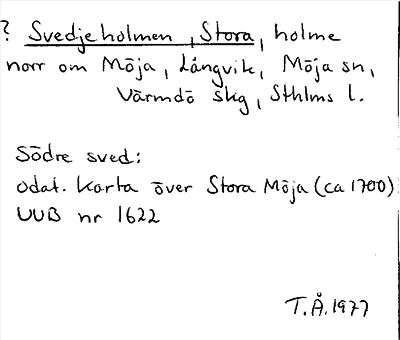 ? Svedjeholmen, Stora, holme
norr om Möja, Långvik, Möja sn,
Värmdö skg, Sthlms l.
Södre sved:
odat. karta över Stora Möja (ca 1700)
UUB nr 1622
T.Å. 1977